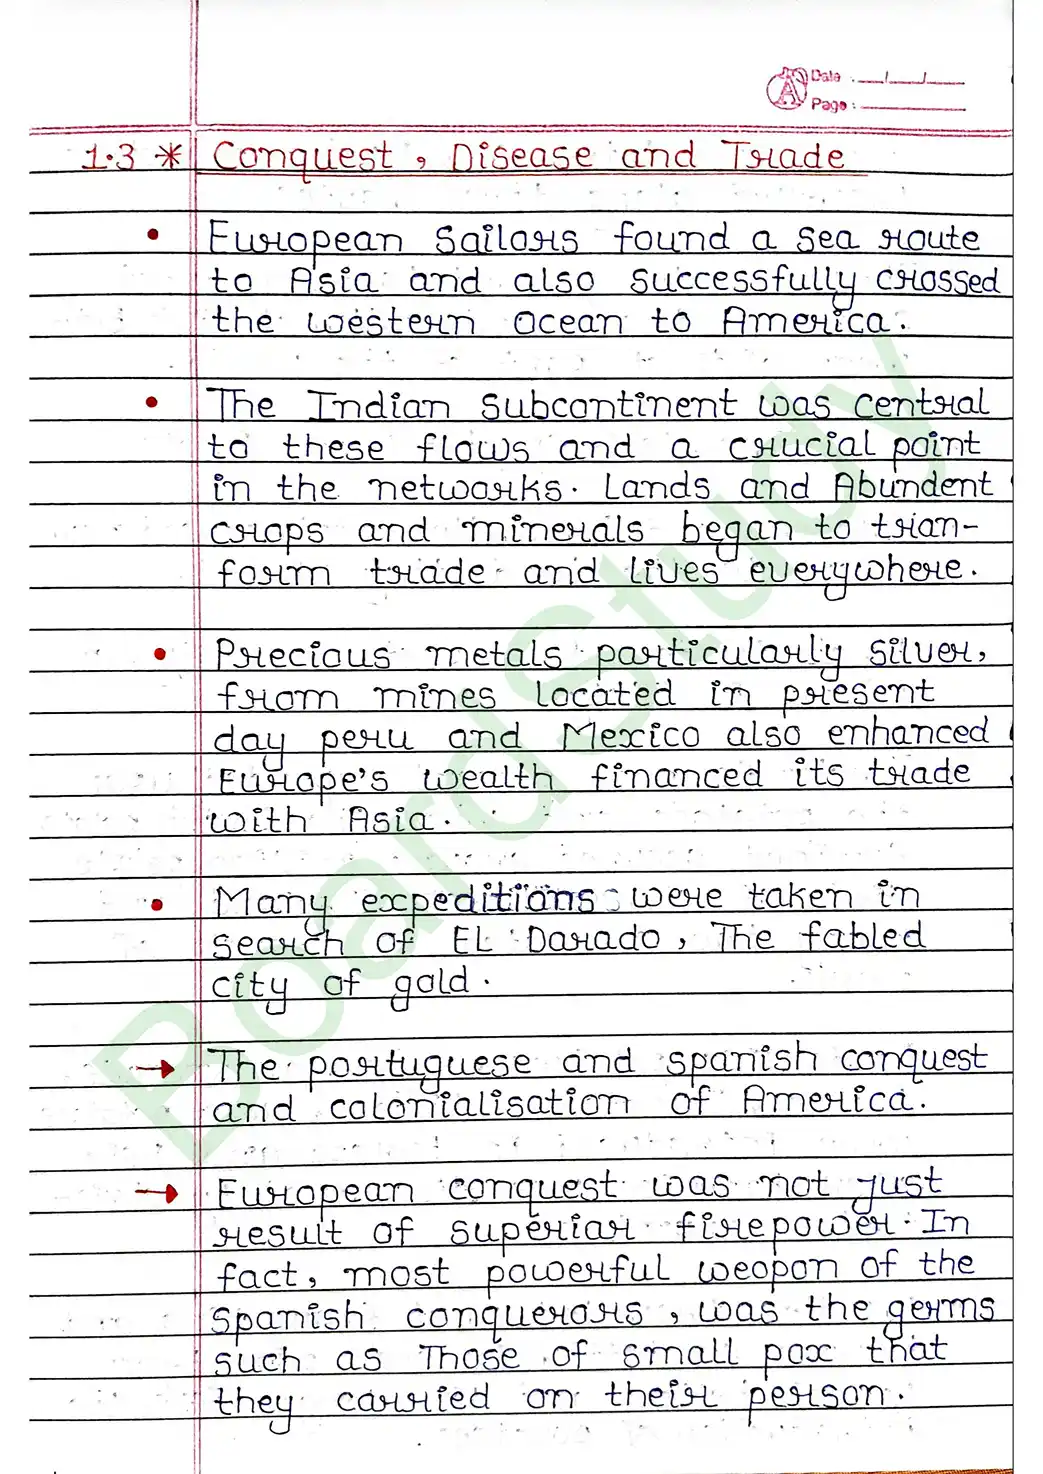 Date : __/__/__
Page :
1.3 * Conquest, Disease and Trade
• European Sailors found a sea route
to Asia and also successfully crossed
the western ocean to America.
• The Indian subcontinent was central
to these flows and a crucial point
in the networks. Lands and Abundent
crops and minerals began to tran-
form trade and lives everywhere.
• Precious metals particularly silver,
from mines located in present
day peru and Mexico also enhanced
Europe's wealth financed its trade
with Asia.
• Many expeditions were taken in
search of EL Dorado, The fabled
city of gold.
→ The portuguese and spanish conquest
and colonialisation of America.
→ European conquest was not just
result of superior firepower. In
fact, most powerful weopon of the
spanish conquerors, was the germs
such as Those of small pox that
they carried on their person.
BoardStudy